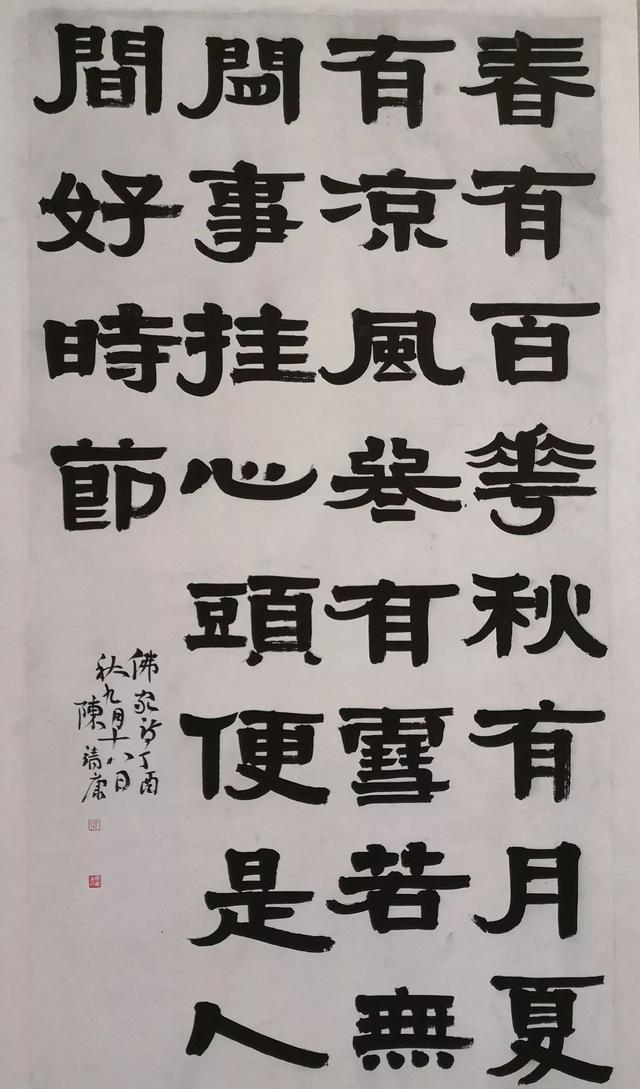 春有百華秋有月夏
有凉風冬有雪若無
閒事挂心頭便是人
間好時節
佛家詩丁酉
秋九月十八日
陳靖康